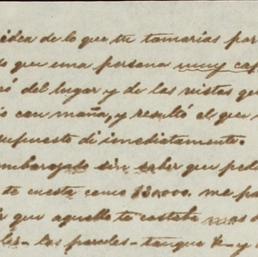 idea de lo que tu tomarias por
que una persona muy cap
ró del lugar y de las vistas que
con maña, y resultó al que
supuesto di inmediatamente.
embarajado sin saber que pedi
te cuesta como $30.000. me pa
r que aquello te costaba mas d
les - las paredes - tanque &- y